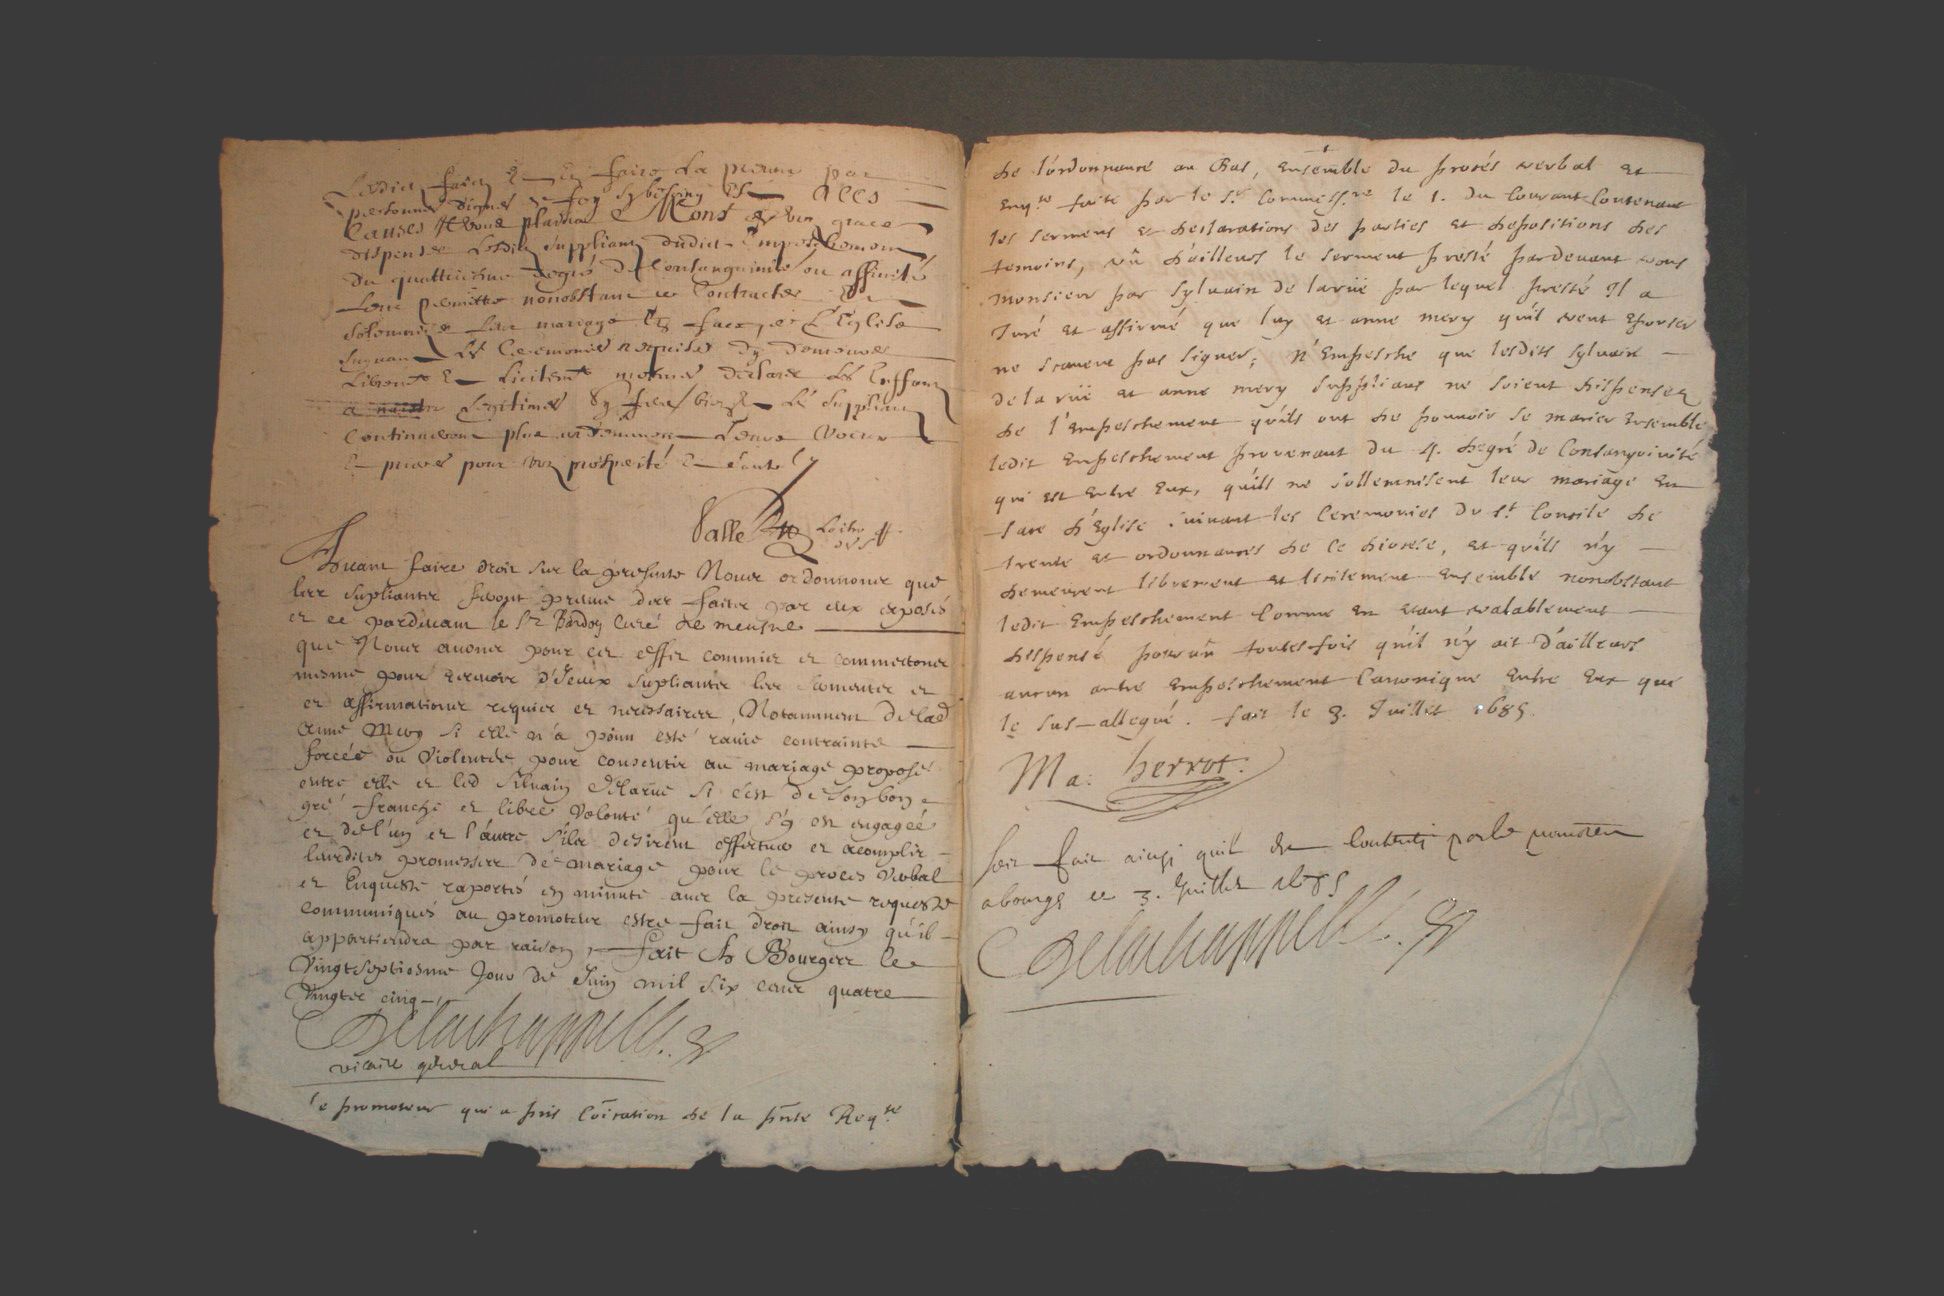 Lesdicts faicts & en faire la preuve par
personnes dignes de foy sy besoing est. A ces
Causes Mons^r vous plaira de vos graces
dispenser lesdicts suppliants dudict empeschement
du quattriesme degré de Consanguinité ou affinité
Leur permettre nonobstant ice Contracter &
solemniser leur mariage en face de l'Eglise
suivant les Ceremonies requises dy demeurer
Librem^t & Licitem^t mesmes declarer les Enffans
a naistre Legitimes Sy ferez bien & les suppliants
Continueront plus ardemment Leurs Voeux
& prieres pour vos prosperité & santé
Avant faire droit sur la presente Nous ordonnons que
les suplianter feront preuve des faits par eux exposés
et ce pardevant le S^r Bardoy Curé de meusne
que Nous avons pour cet effet commis et commettons
mesme pour recevoir d'Iceux suplianter les serments et
et affirmations requis et necessaires, Notamment de lad
Anne Mery si elle n'a point esté ravie contrainte
forcée ou Violentée pour consentir au mariage proposé
entre elle et led Silvain Delarue si c'est de son bon
gré franche et libre volonté qu'elle s'y est engagée
et de l'un et l'autre s'ils desirent effectuer et acomplir
lesdites promesses de mariage pour le proces Verbal
et Enqueste raportés en minute avec la presente requeste
communiqués au promoteur estre fait droit ainsy qu'il
appartiendra par raison, fait A Bourges le
Vingt septiesme Jour de Juin mil six cent quatre
Vingts cinq
Delachappelle
vicaire general
le promoteur qui a pris co͞ication de la p͞nte Req^te
de l'ordonnance au Bas, ensemble du procés verbal et
Enq^te faite par le S^r Commiss^re le 1. du Courant Contenant
les sermens et declarations des parties et depositions des
temoins, vû d'ailleurs le serment presté pardevant vous
monsieur par sylvain de larüe par lequel presté Il a
Juré et affirmé que luy et anne mery qu'il veut espouser
ne scavent pas signer; n'Empesche que lesdits sylvain
de larüe et anne mery suppliants ne soient dispensez
de l'Empeschement qu'ils ont de pouvoir se marier Ensemble
ledit Empeschement provenant du 4. degré de Consanguinité
qui est entre Eux, qu'ils ne sollemnisent leur mariage En
face d'Eglise suivant les Ceremonies du S^t Concile de
trente et ordonnances de ce diocese, et qu'ils n'y
demeurent librement et licitement Ensemble nonobstant
ledit Empeschement Comme En etant valablement
dispensé pourvû toutesfois qu'il n'y ait d'ailleurs
aucun autre Empeschement Canonique Entre Eux que
le sus-allegué. fait le 3. Juillet 1685.
Ma: herrot.
soit fait ainsi quil est par le promoteur
a bourges ce 3. Juillet 1685
Delachappelle